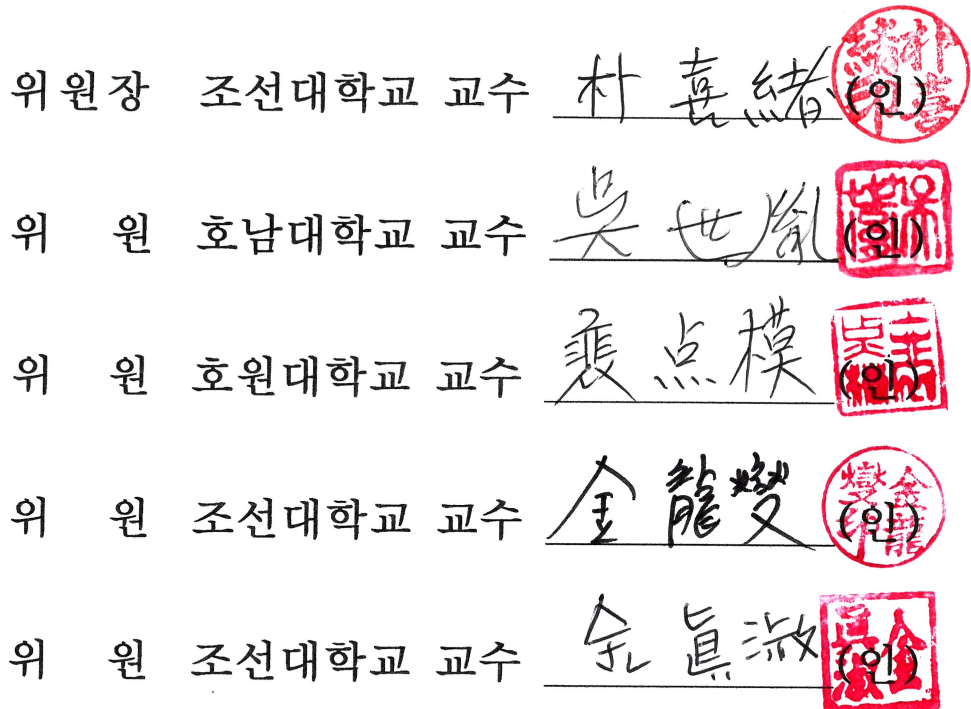 위원장 조선대학교 교수 朴喜緖 (인)
위 원 호남대학교 교수 吳世胤 (인)
위 원 호원대학교 교수 裵点模 (인)
위 원 조선대학교 교수 金龍燮 (인)
위 원 조선대학교 교수 金眞淑 (인)